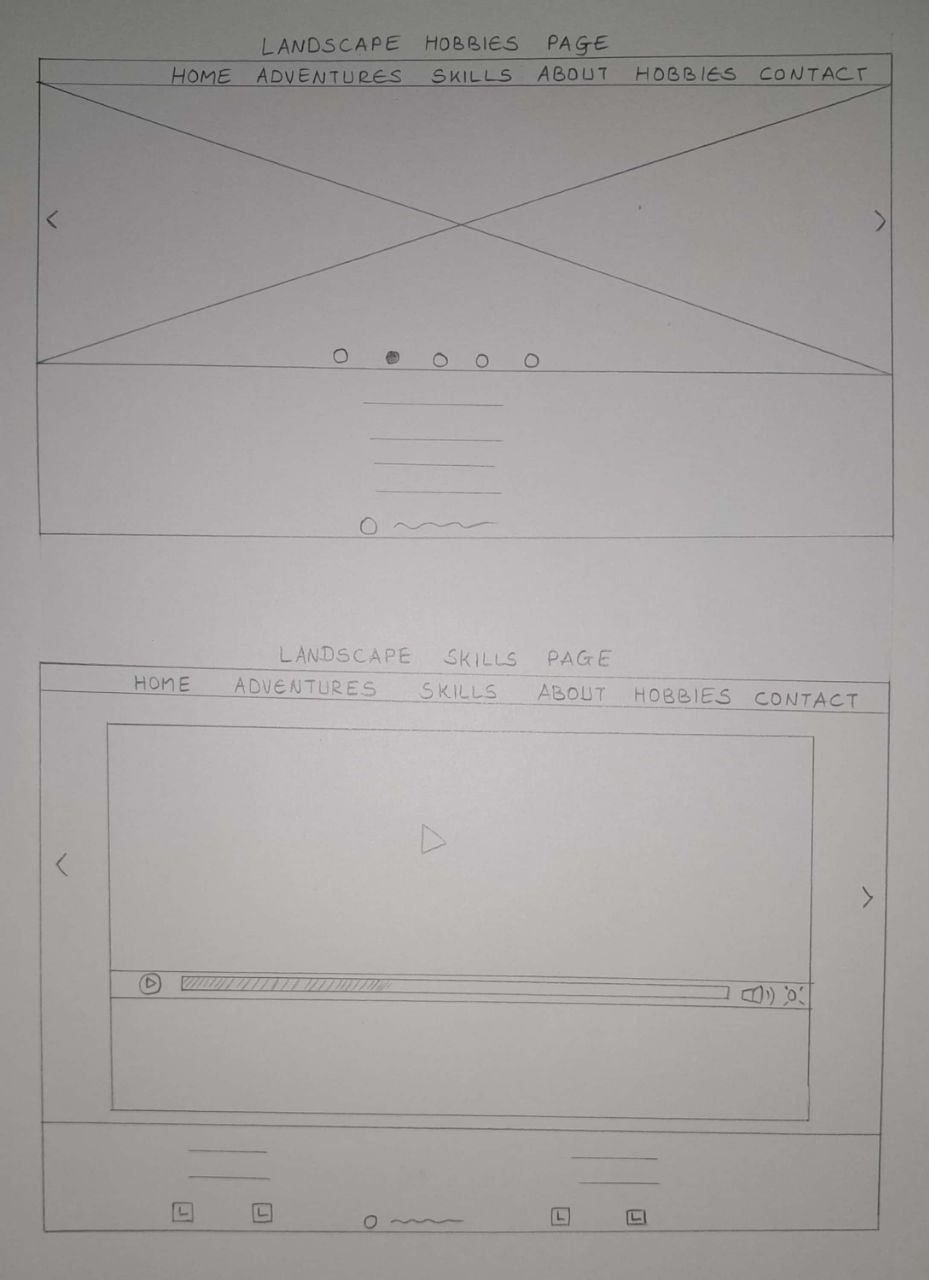 LANDSCAPE HOBBIES PAGE
HOME ADVENTURES SKILLS ABOUT HOBBIES CONTACT
LANDSCAPE SKILLS PAGE
HOME ADVENTURES SKILLS ABOUT HOBBIES CONTACT
L L L L